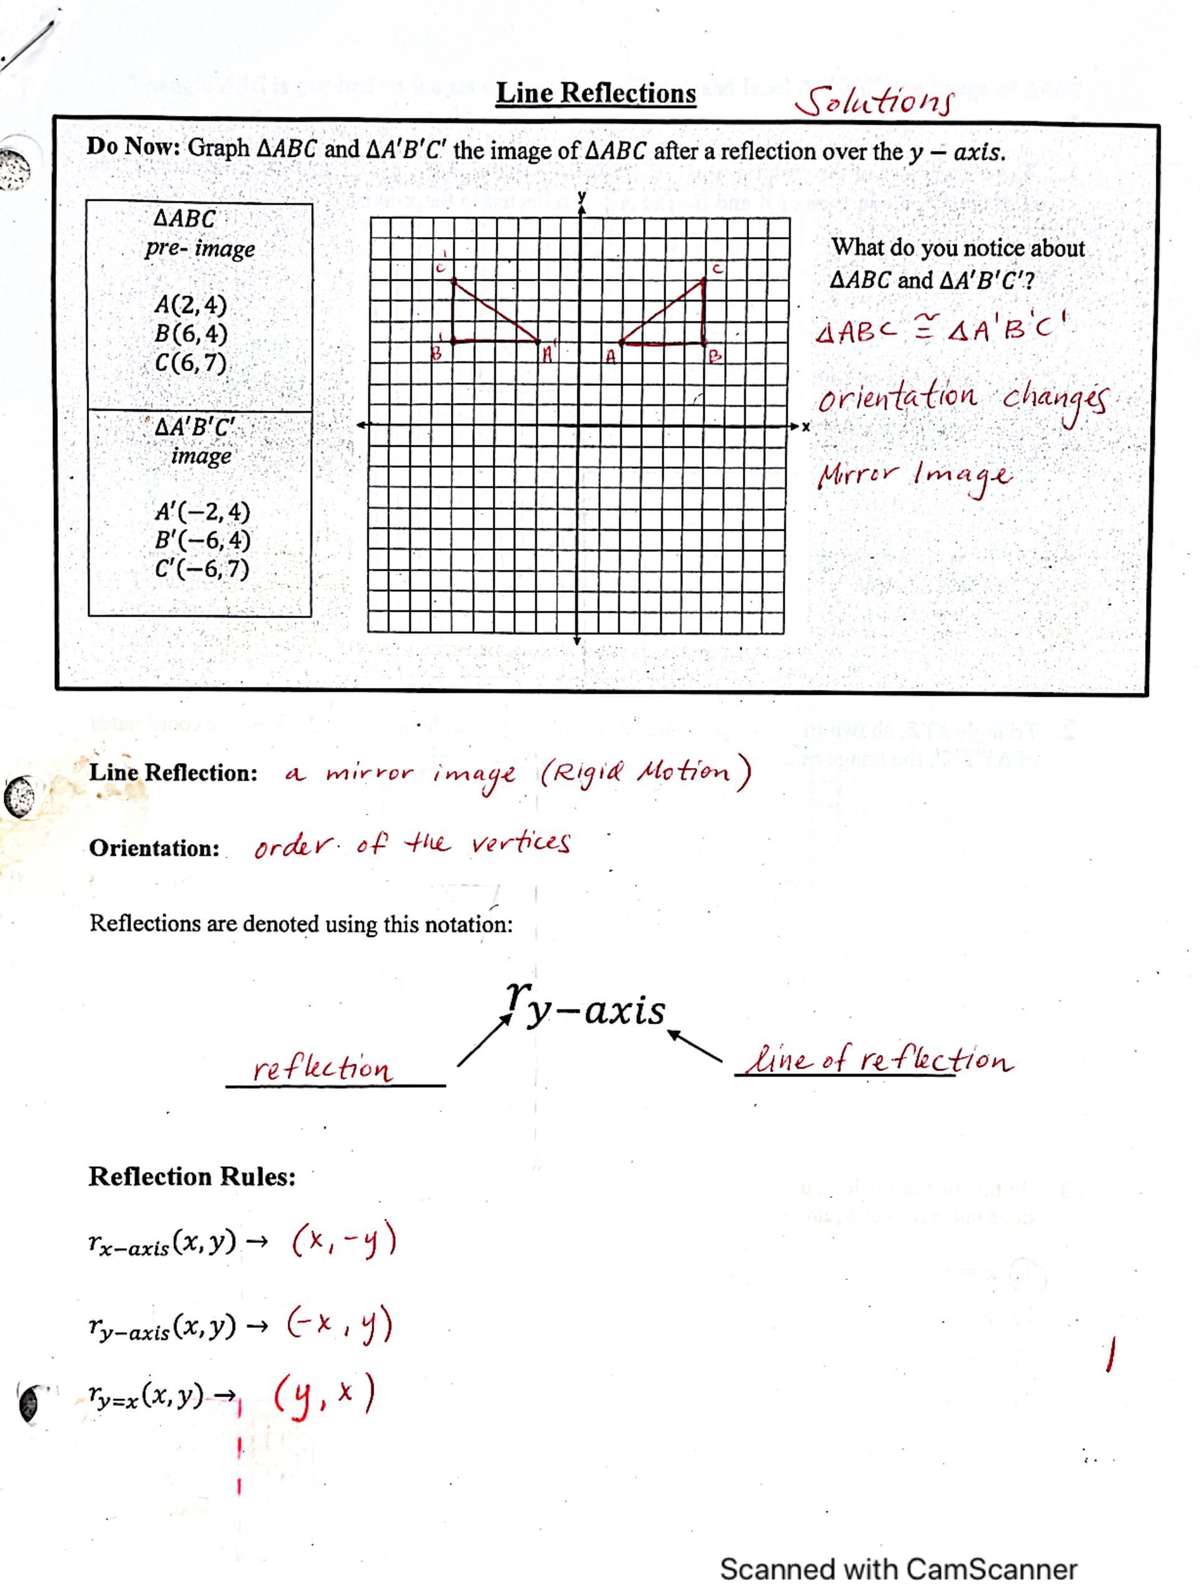 Line Reflections
Solutions
Do Now: Graph ΔABC and ΔA'B'C' the image of ΔABC after a reflection over the y – axis.
ΔABC
pre- image
A(2,4)
B(6,4)
C(6,7)
ΔA'B'C'
image
A'(−2,4)
B'(−6,4)
C'(−6,7)
y
x
C'
B'
A'
A
B
C
What do you notice about
ΔABC and ΔA'B'C'?
ΔABC ≅ ΔA'B'C'
orientation changes
Mirror Image
Line Reflection: a mirror image (Rigid Motion)
Orientation: order of the vertices
Reflections are denoted using this notation:
r y−axis
reflection
line of reflection
Reflection Rules:
r x−axis (x, y) → (x, -y)
r y−axis (x, y) → (-x, y)
r y=x (x, y) → (y, x)
1
Scanned with CamScanner